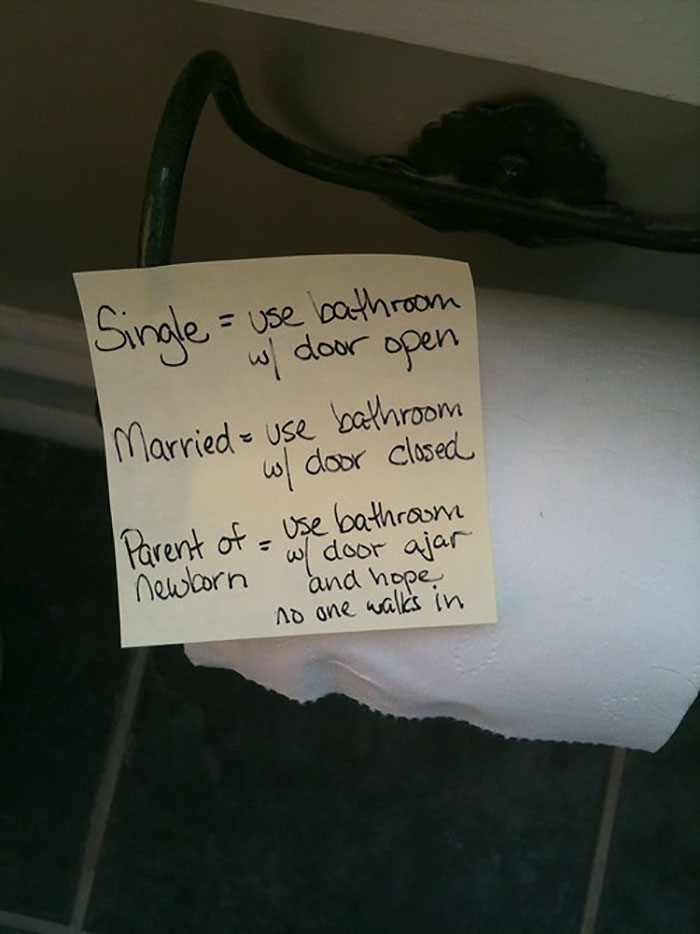 Single = use bathroom
w/ door open
Married = use bathroom
w/ door closed
Parent of = use bathroom
newborn w/ door ajar
and hope
no one walks in